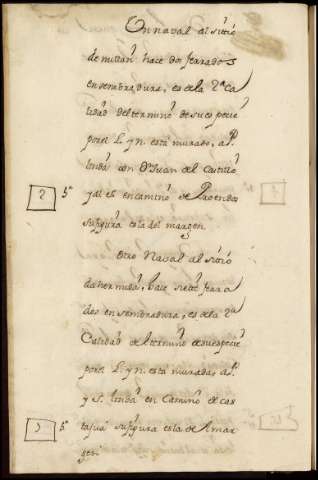 Un naval al sitio
de mittan hace dos ferrados
en sembradura, es de la 2ª Ca
lidad del termino de su especie
por el L. y n. esta murado, a P.
linda con Dn Juan del Castillo
y al S. en camino de Proendos
2 5º su figura es la del margen.
Otro Naval al sitio
da hermida, hace siete ferra
dos en sembradura, es de la 2ª
Calidad del termino de su especie
por el L. y n. esta murada, a P.
y S. linda en Camino de cas
3 5º su figura es la del mar
gen